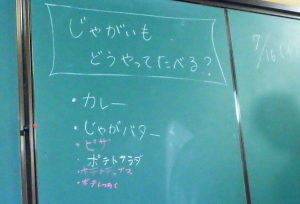 じゃがいも
どうやってたべる?
・カレー
・じゃがバター
・ピザ
・ポテトサラダ
・ポテトチップス
7/16